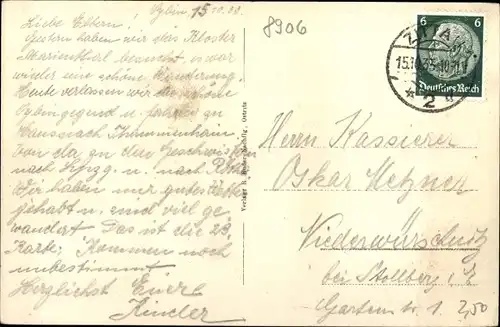 Oybin, 15.10.38.
8906
Liebe Eltern!
Gestern haben wir das Kloster
Marienthal besucht, es war
wieder eine schöne Wanderung.
Heute verlassen wir die schöne
Oybingegend u. fahren
nach Thümmenhain,
von da zu den Geschwistern
nach Lpzg. u. nach
Wir haben nur gutes
gehabt u. sind viel ge
wandert. Das ist die 23.
Karte. Kommen noch
unbestimmt
Herzlichst Eure
Kinder
Verlag
Ostritz
6 6
Deutsches Reich
ZITTAU
15.10.38
* 2 d
Herrn Kassierer
Oskar Metzner
Niederwürschnitz
bei Stollberg i. E.
Gartenstr. 1.
2,50